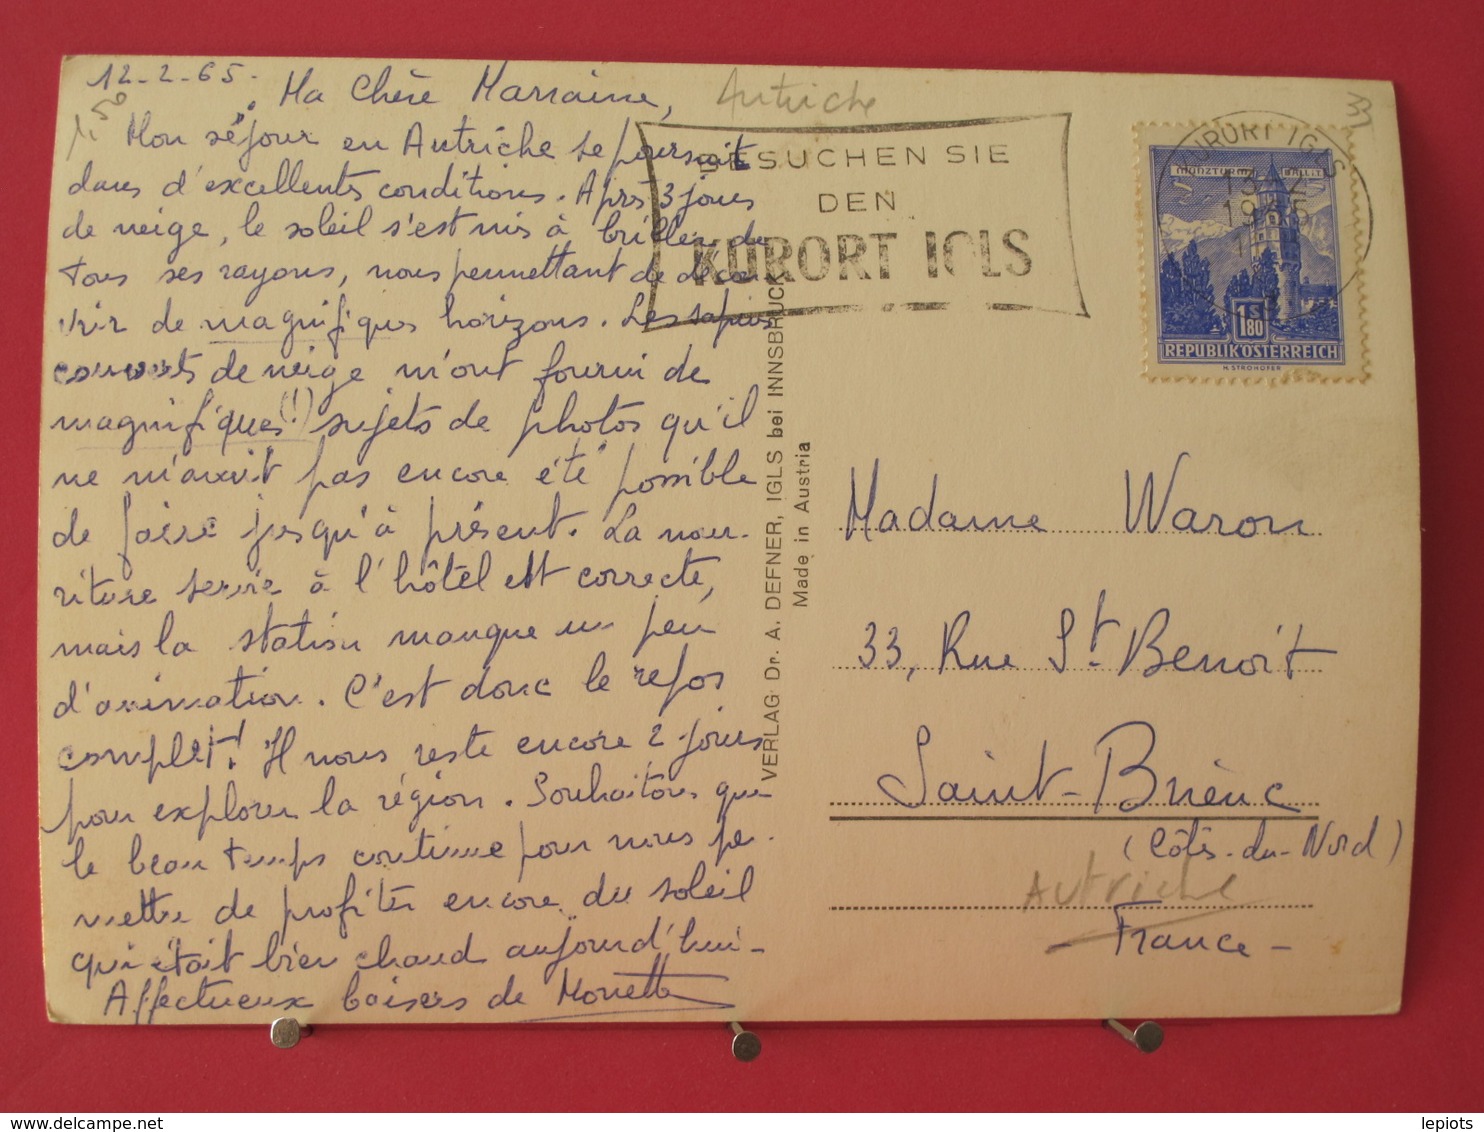 12-2-65.
1,50
Ma Chère Marraine,
Autriche
Mon séjour en Autriche se poursuit
dans d'excellentes conditions. Après 3 jours
de neige, le soleil s'est mis à briller de
tous ses rayons, nous permettant de décou
vrir de magnifiques horizons. Les sapins
couverts de neige m'ont fourni de
magnifiques (!) sujets de photos qu'il
ne m'avait pas encore été possible
de faire jusqu'à présent. La nour-
riture servie à l'hôtel est correcte,
mais la station manque un peu
d'animation. C'est donc le repos
complet! Il nous reste encore 2 jours
pour explorer la région. Souhaitons que
le beau temps continue pour nous per-
mettre de profiter encore du soleil
qui était bien chaud aujourd'hui -
Affectueux baisers de
BESUCHEN SIE
DEN
KURORT IGLS
KURORT IGLS
MÜNZTURM HALL I.T.
1S
1.80
REPUBLIK ÖSTERREICH
H. STROHOFER
VERLAG: Dr. A. DEFNER, IGLS bei INNSBRUCK
Made in Austria
Madame Waron
33, Rue St Benoît
Saint-Brieuc
(Côtes-du-Nord)
Autriche
- France -
lepiots